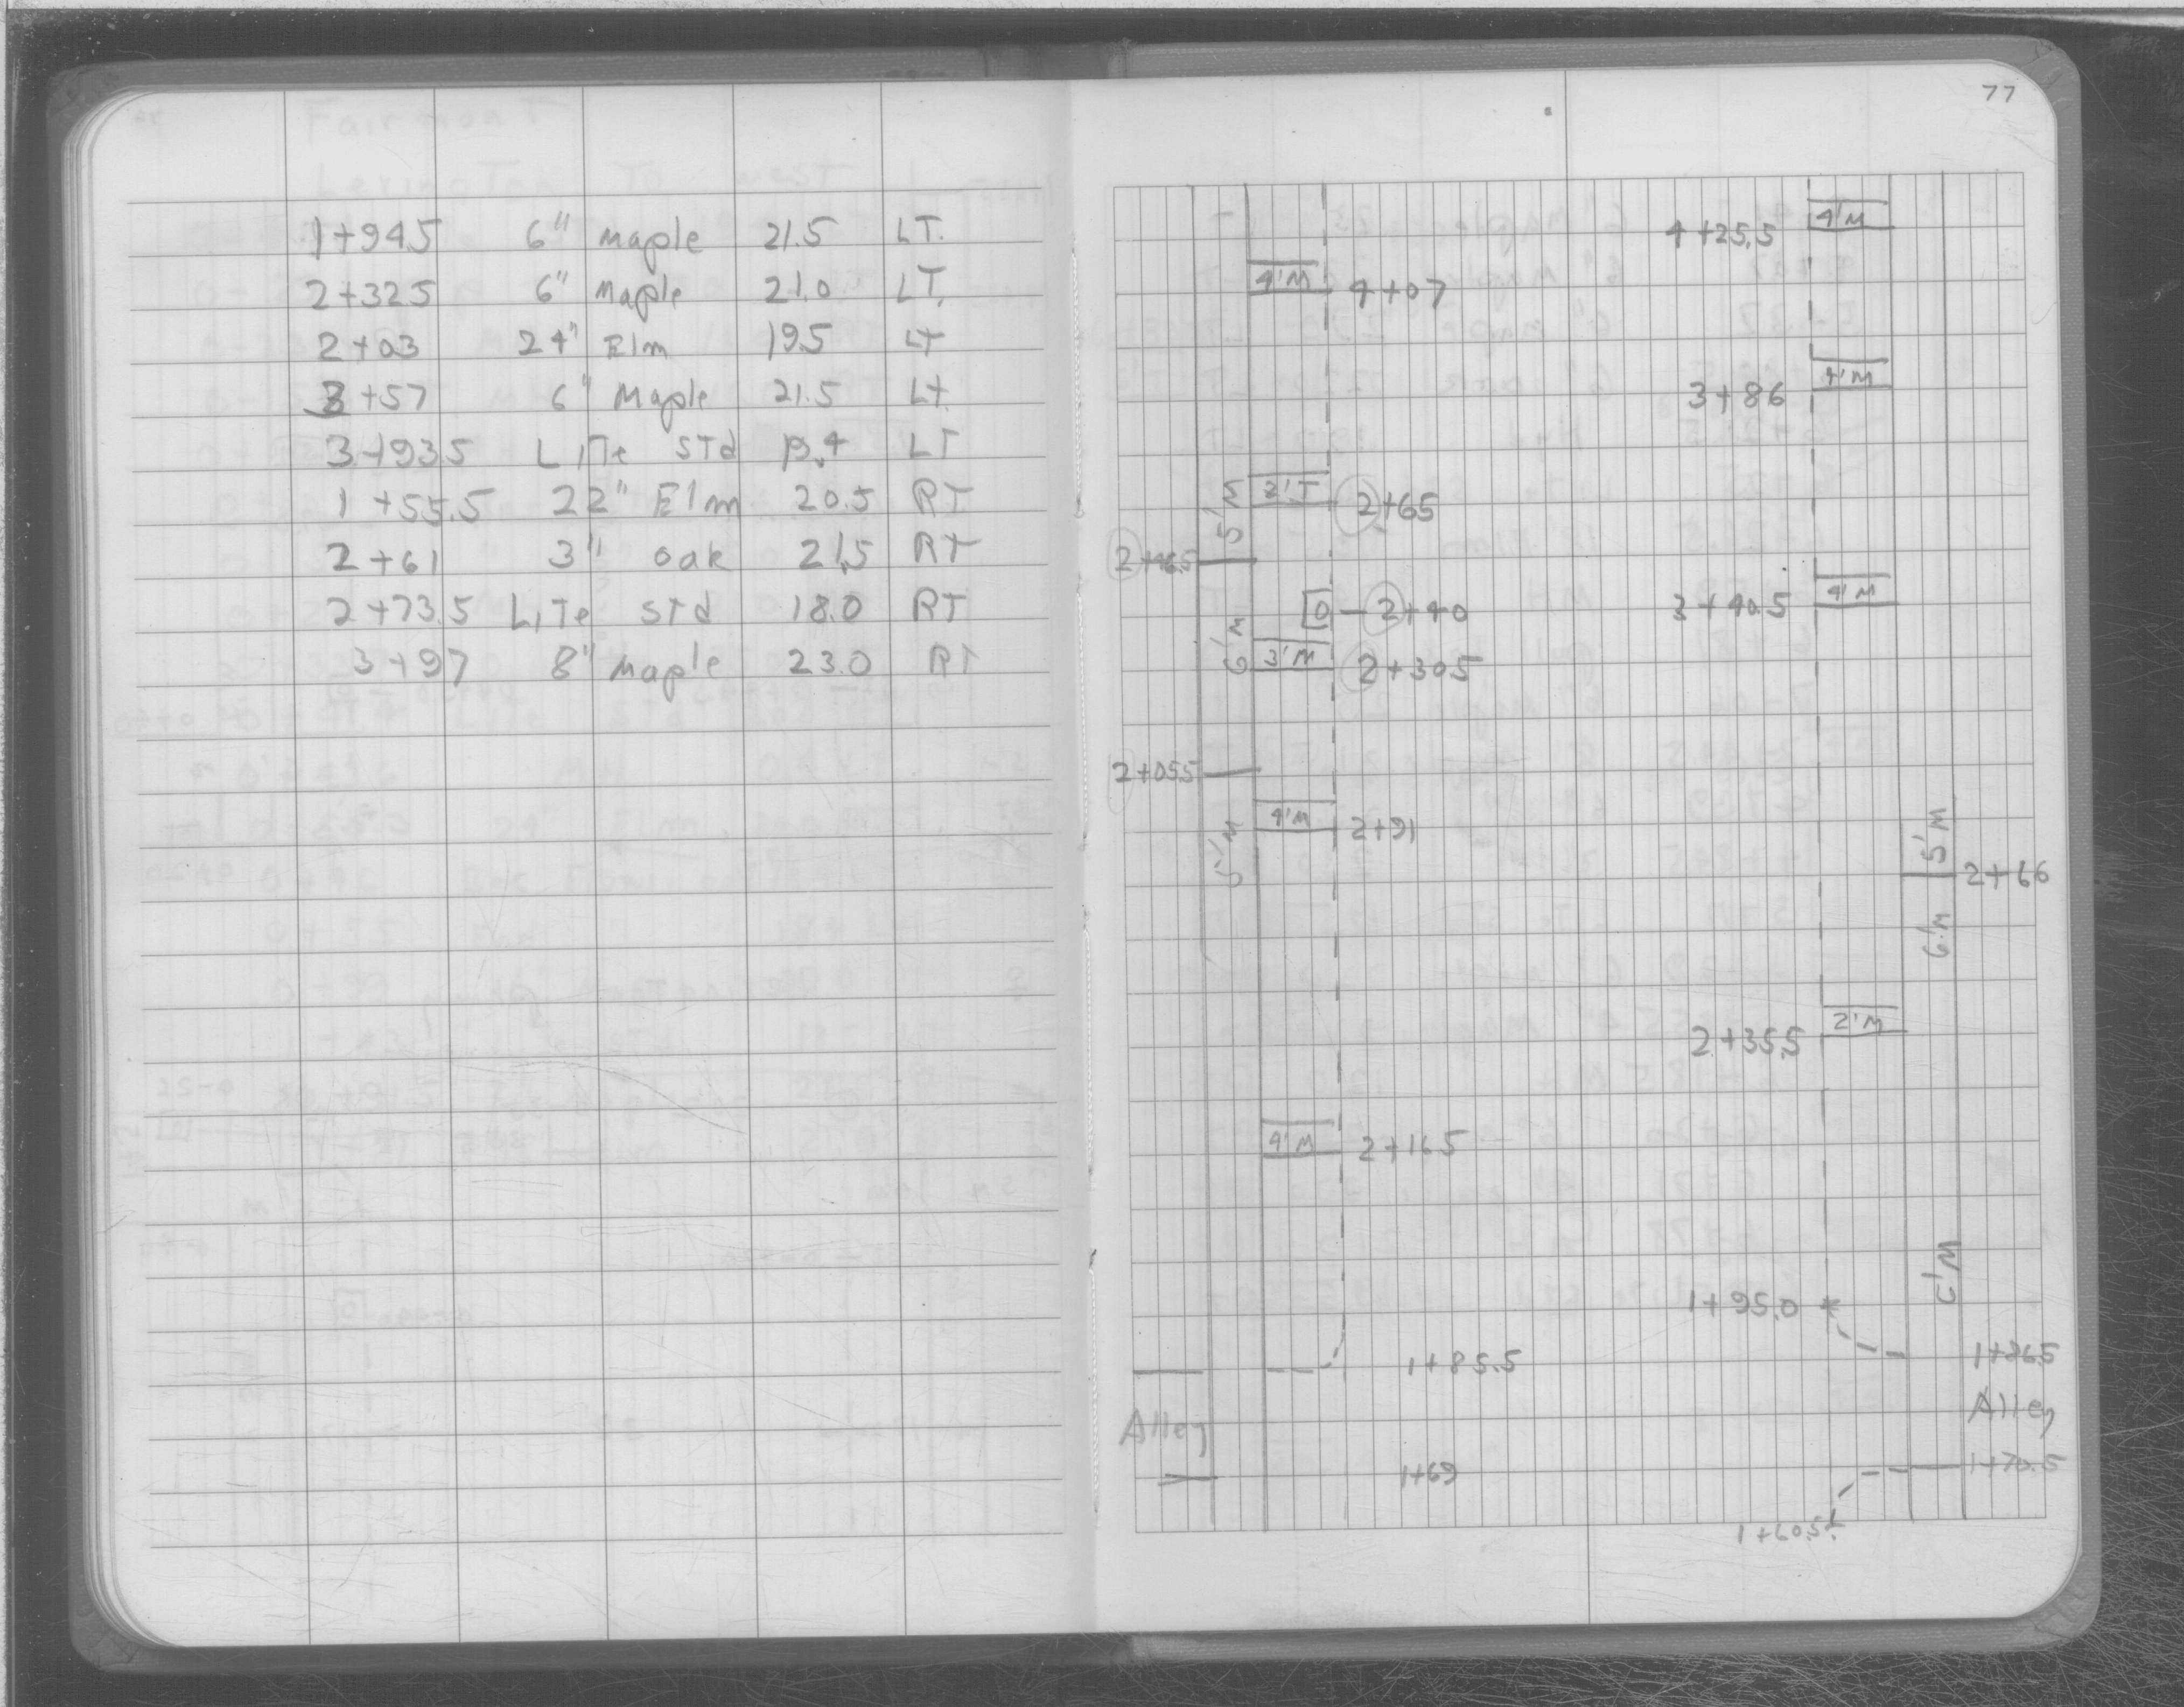 1+94.5 6" maple 21.5 LT.
2+32.5 6" maple 21.0 LT.
2+03 24" Elm 19.5 LT
3+57 6" Maple 21.5 LT
3+93.5 LiTe STd 19.4 LT
1+55.5 22" Elm 20.5 RT
2+61 3" oak 21.5 RT
2+73.5 LiTe STd 18.0 RT
3+97 8" maple 23.0 RT
77
4'M
4+25.5
4'M 4+07
4'M
3+86
5'M 2'T 2+65
2+46.5
O 2+40 3+40.5 4'M
6'M 3'M 2+30.5
2+05.5
4'M 2+91
5'M 5'M
2+66
6'M
2'M
2+35.5
4'M 2+16.5
6'M
1+95.0
1+85.5 1+86.5
Alley Alley
1+69 1+70.5
1+60.5